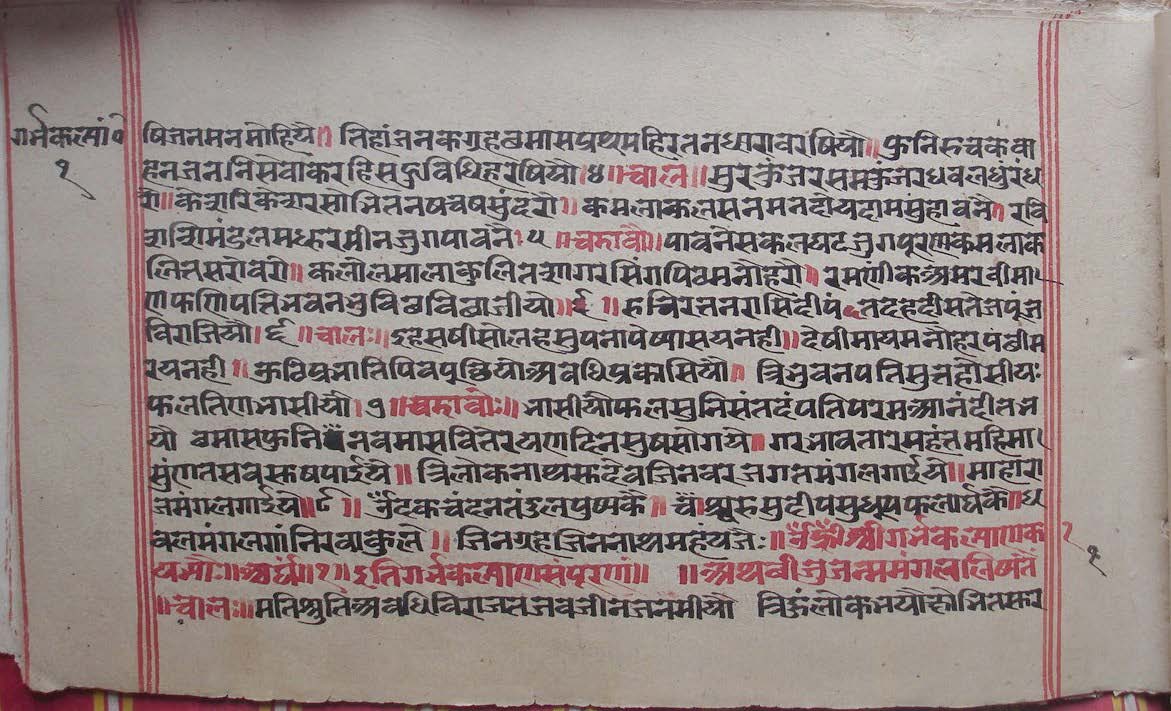 गर्भकल्यां० षिजनमनमोहियै॥ तिहां जनकगृहछमासप्रथमहिरतनधारावरषियौ॥ फुनिरुचकवा
१
हनजननिसेवाकरहिसहुविधिहरषियौ।४॥चाल॥सुरकुंजरसमकुंजरधवलधुरंध
रौ॥केशरिकेशरसोभितनषचषसुंदरौ॥ कमलाकलसनमनदोयदामसुहावनै॥रवि
शशिमंडलमधुरमीनजुगपावनै।५॥छदावौ॥पावनिसकलघटजुगपूरणकमलाक
लितसरोवरौ॥ कलोलमालाकुलितसागरसिंगपिठमनौहरौ॥ रमणीकअमरवीमा
णफणिपतिभवनभुविछविछाजीयौ॥६॥ रुचिरतनरासिदीपंतदहदीसतेजपूंज
विराजियौ।६॥चालः॥इहसषीसोलहसुपनापेष्यासयनही॥देषीमायमनौहरपछीम
रयनही॥ऊठिप्रभातिपिवपूछियौअवधिप्रकासियौ॥ त्रिभुवनपतिसुतहौसीयः
फलतिणभासीयौ।७॥छदावौः॥भासीयौफलसुनिसंतदंपतिपरमआनंदीतभ
यौ छमासफुनिनवमासवितेरयणदिनसुषसोगयै॥गरभावतारमहंतमहिमा
सुंणतसबसुषपाईयै॥ त्रिलोकनाथसुदेवजिनवरजगतमंगलगाईयै॥माहारा
जमंगलगाईयौ८॥ उँदकचंदनतंदुलपुष्पकै॥ चरुसुदीपसुधूपफलार्घकै॥ध
वलमंगलगांनिरवाकुले॥ जिनगृहेजिननाथमहंयजेः॥उँह्रीँश्रीगर्भकल्याणक २
यनमौः॥अर्घ॥१॥इतिगर्भकल्याणसंपूरणं॥ ॥अथबीजुजन्ममंगललिष्यतै १
॥चालः॥मतिश्रुतिअवधिविराजतजबजीनजनमीयौ त्रिहुंलोकभयौक्षोभितसुर